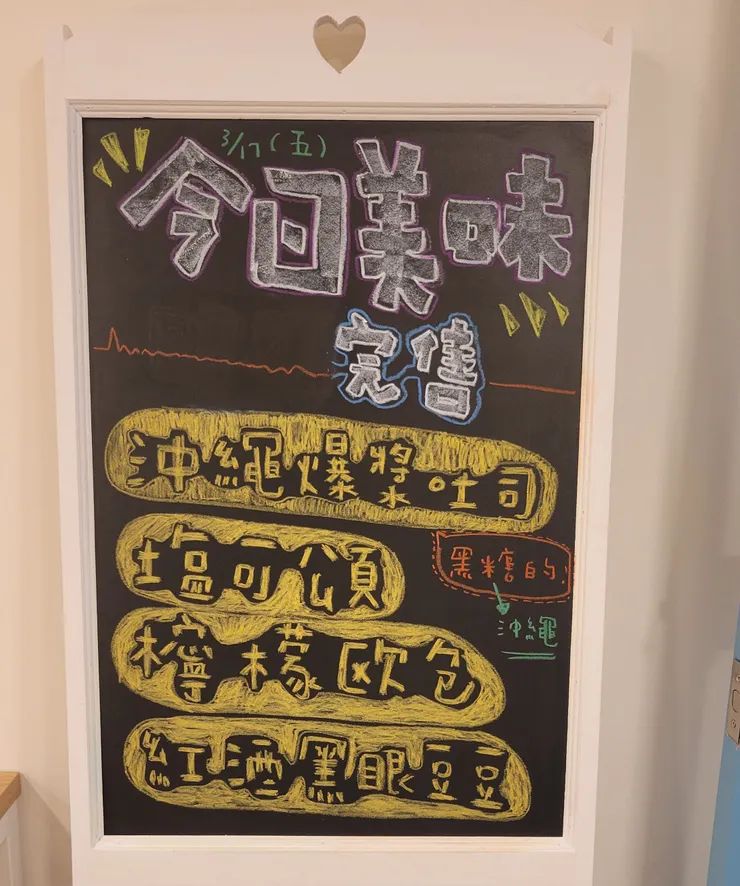 3/17(五)
今日美味
完售
沖繩爆漿吐司
塩可頌
黑糖的
沖繩
檸檬欧包
紅酒黑眼豆豆